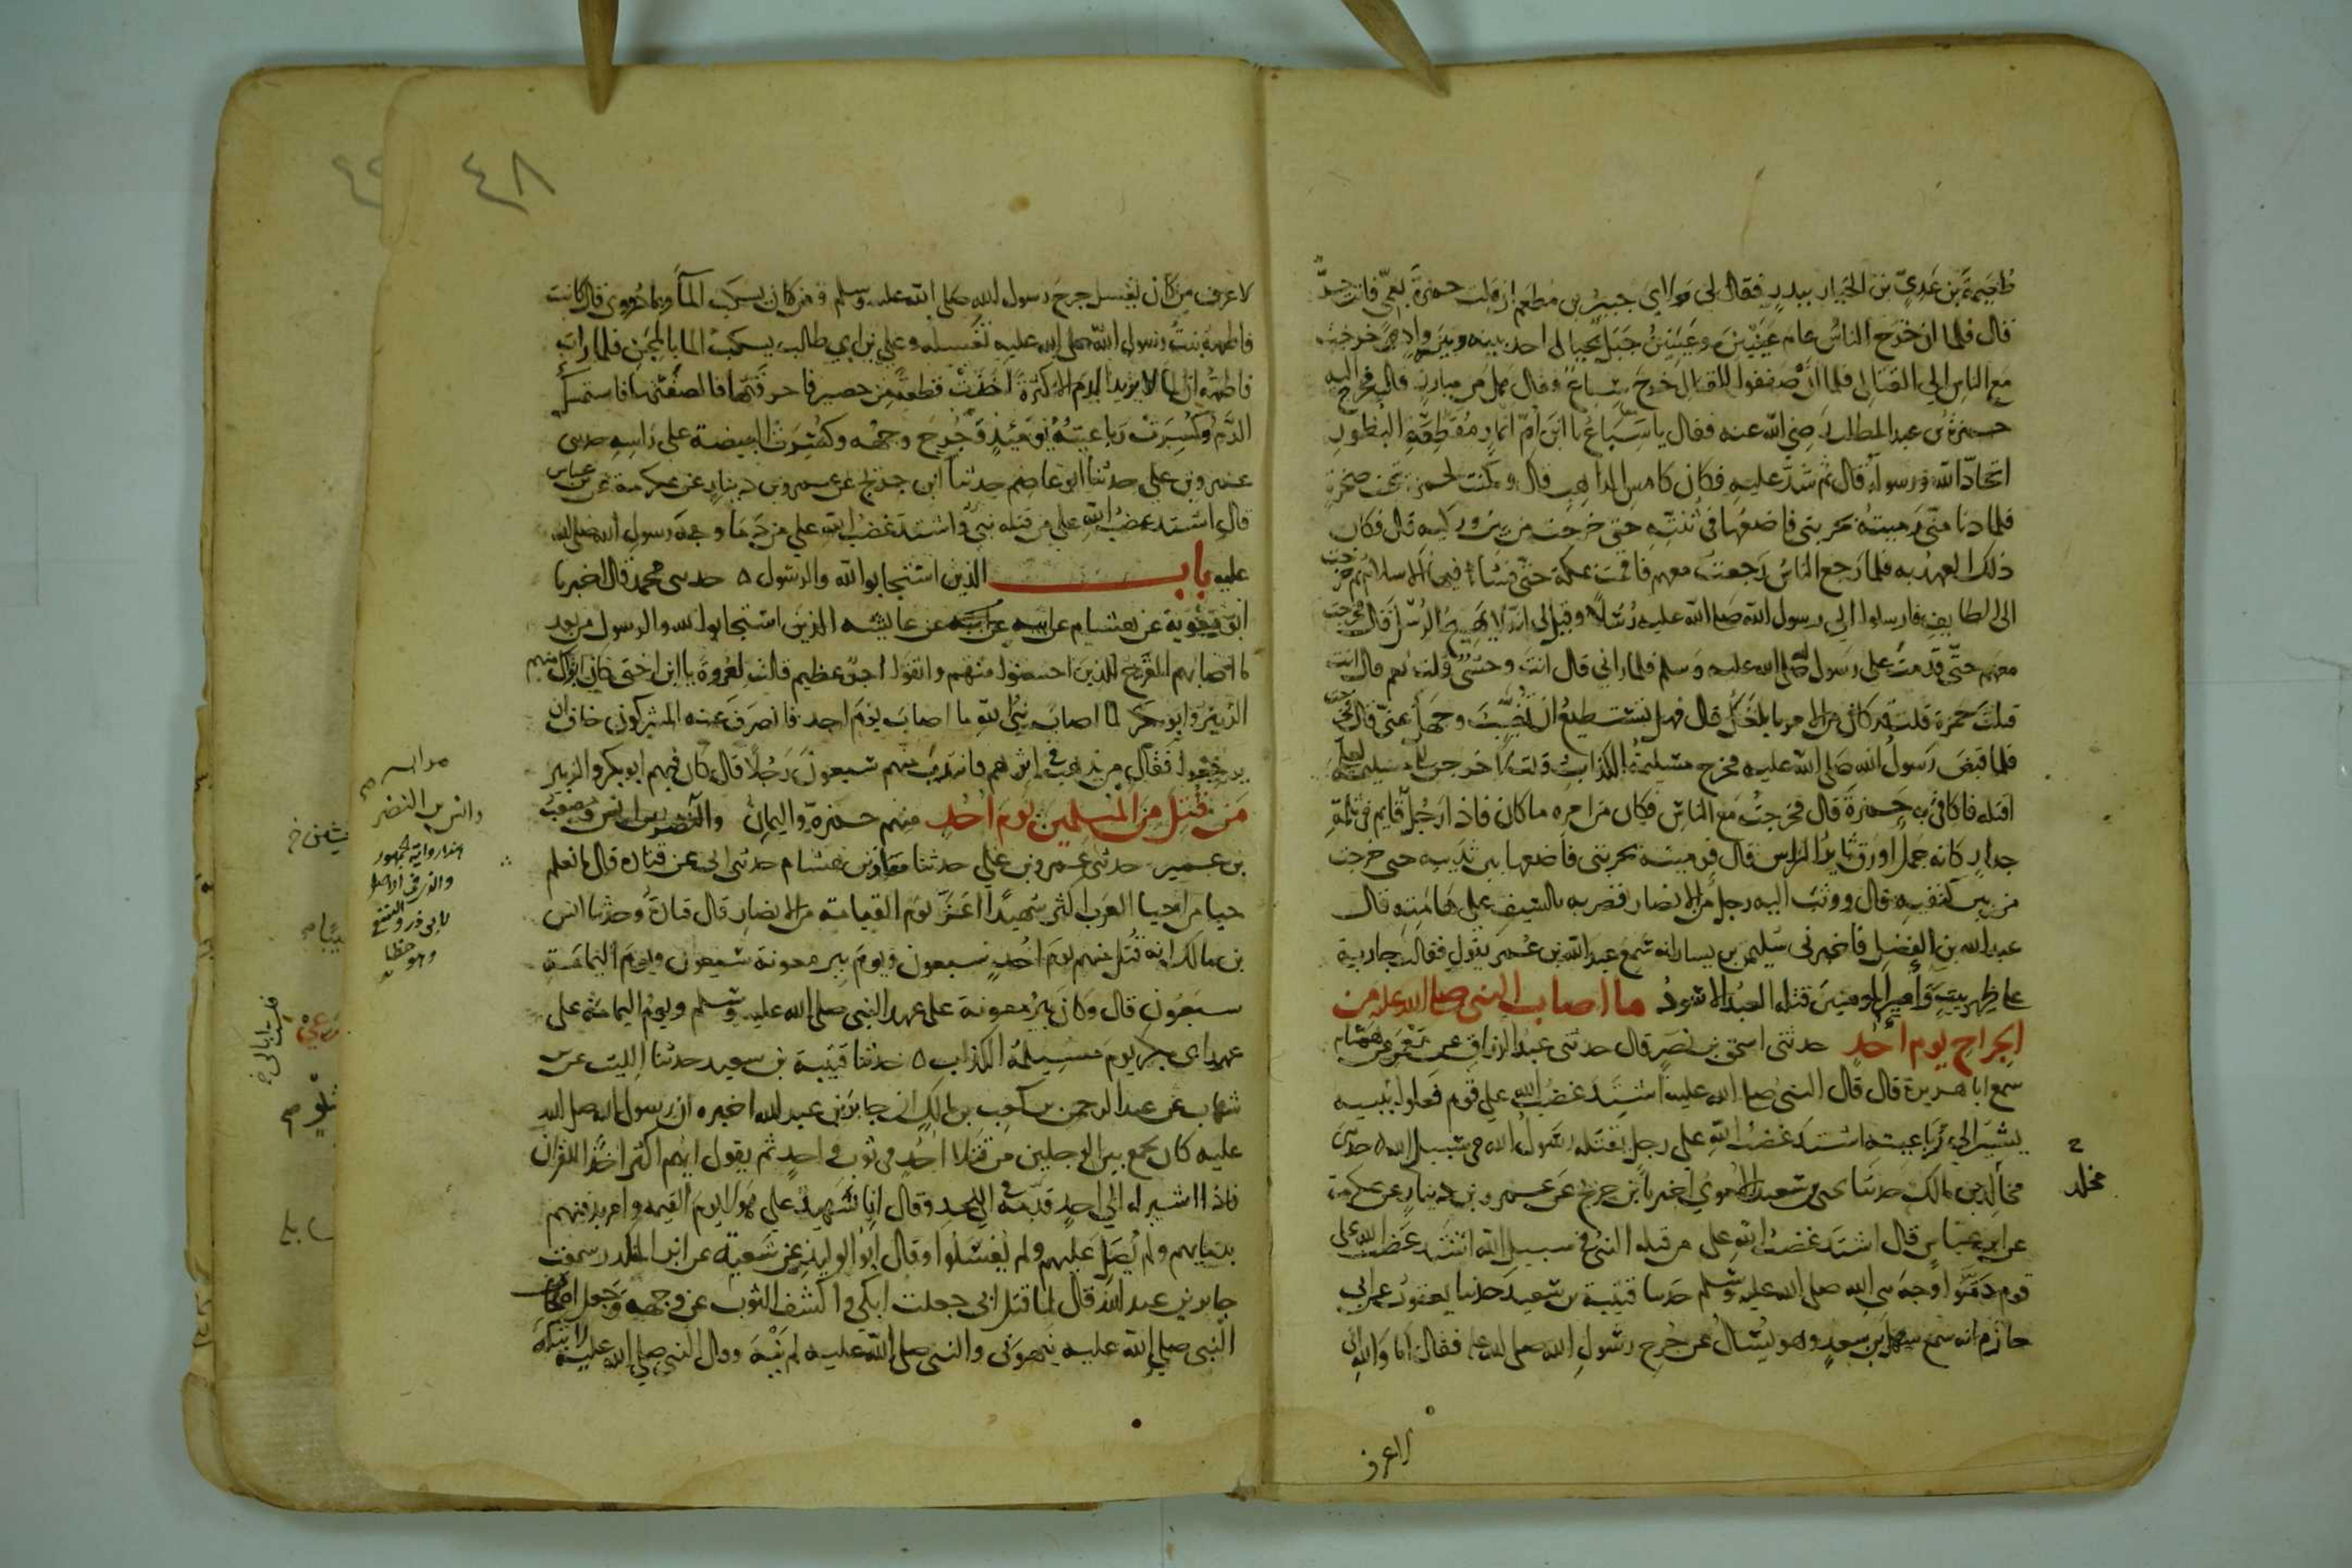 طعيمة بن عدي بن الخيار ببدر فقال لي مولاي جبير بن مطعم ان قتلت حمزة بعمي فانت حر
قال فلما ان خرج الناس عام عينين وعينين جبل بحيال احد بينه وبين واد خرجت
مع الناس الى القتال فلما ان اصطفوا للقتال خرج سباع فقال هل من مبارز قال فخرج اليه
حمزة بن عبد المطلب رضي الله عنه فقال يا سباع يا ابن ام انمار مقطعة البظور
اتحاد الله ورسوله قال ثم شد عليه فكان كامس الذاهب قال وكمنت لحمزة تحت صخرة
فلما دنا مني رميته بحربتي فاضعها في ثنته حتى خرجت من بين وركيه قال فكان
ذلك العهد به فلما رجع الناس رجعت معهم فاقمت بمكة حتى فشا فيها الاسلام ثم خرجت
الى الطايف فارسلوا الى رسول الله صلى الله عليه رسلا وقيل لي انه لا يهيج الرسل قال فخرجت
معهم حتى قدمت على رسول الله صلى الله عليه وسلم فلما راني قال انت وحشي قلت نعم قال انت
قتلت حمزة قلت قد كان من الامر ما بلغك قال فهل تستطيع ان تغيب وجهك عني قال فخرجت
فلما قبض رسول الله صلى الله عليه فخرج مسيلمة الكذاب قلت لاخرجن الى مسيلمة لعلي
اقتله فاكافي به حمزة قال فخرجت مع الناس فكان من امره ما كان فاذا رجل قايم في ثلمة
جدار كانه جمل اورق ثاير الراس قال فرميته بحربتي فاضعها بين ثدييه حتى خرجت
من بين كتفيه قال ووثب اليه رجل من الانصار فضربه بالسيف على هامته قال
عبد الله بن الفضل فاخبرني سليمن بن يسار انه سمع عبد الله بن عمر يقول فقالت جارية
على ظهر بيت وا امير المومنين قتله العبد الاسود ما اصاب النبي صلى الله عليه من
الجراح يوم احد حدثني اسحق بن نصر قال حدثني عبد الرزاق عن معمر عن همام
سمع ابا هريرة قال قال النبي صلى الله عليه اشتد غضب الله على قوم فعلوا بنبيه
يشير الى رباعيته اشتد غضب الله على رجل يقتله رسول الله في سبيل الله حدثني
مخلد بن مالك حدثنا يحيى بن سعيد الاموي اخبرنا ابن جريج عن عمرو بن دينار عن عكرمة
عن ابن عباس قال اشتد غضب الله على من قتله النبي في سبيل الله اشتد غضب الله على
قوم دموا وجه نبي الله صلى الله عليه وسلم حدثنا قتيبة بن سعيد حدثنا يعقوب عن ابي
حازم انه سمع سهل بن سعد وهو يسال عن جرح رسول الله صلى الله عليه فقال اما والله اني
مخلد
لاعرف
٤٨
لاعرف من كان يغسل جرح رسول الله صلى الله عليه وسلم ومن كان يسكب الماء وبما دووي قال كانت
فاطمة بنت رسول الله صلى الله عليه تغسله وعلي بن ابي طالب يسكب الماء بالمجن فلما رات
فاطمة ان الماء لا يزيد الدم الا كثرة اخذت قطعة من حصير فاحرقتها فالصقتها فاستمسك
الدم وكسرت رباعيته يومئذ وجرح وجهه وكسرت البيضة على راسه حدثني
عمرو بن علي حدثنا ابو عاصم حدثنا ابن جريج عن عمرو بن دينار عن عكرمة عن ابن عباس
قال اشتد غضب الله على من قتله نبي واشتد غضب الله على من دما وجه رسول الله صلى الله
عليه باب الذين استجابوا لله والرسول ه حدثني محمد قال اخبرنا
ابو معوية عن هشام عن ابيه عن عايشة الذين استجابوا لله والرسول من بعد
ما اصابهم القرح للذين احسنوا منهم واتقوا اجر عظيم قالت لعروة يا ابن اختي كان ابواك منهم
الزبير وابو بكر لما اصاب نبي الله ما اصاب يوم احد فانصرف عنه المشركون خاف ان
يرجعوا فقال من يذهب في اثرهم فانتدب منهم سبعون رجلا قال كان فيهم ابو بكر والزبير
من قتل من المسلمين يوم احد منهم حمزة واليمان والنضر بن انس ومصعب
بن عمير حدثني عمرو بن علي حدثنا معاذ بن هشام حدثني ابي عن قتادة قال ما نعلم
حيا من احيا العرب اكثر شهيدا اعز يوم القيامة من الانصار قال قتادة وحدثنا انس
بن مالك انه قتل منهم يوم احد سبعون ويوم بير معونة سبعون ويوم اليمامة
سبعون قال وكان بير معونة على عهد النبي صلى الله عليه وسلم ويوم اليمامة على
عهد ابي بكر يوم مسيلمة الكذاب ه حدثنا قتيبة بن سعيد حدثنا الليث عن بن
شهاب عن عبد الرحمن بن كعب بن مالك ان جابر بن عبد الله اخبره ان رسول الله صلى الله
عليه كان يجمع بين الرجلين من قتلا احد في ثوب واحد ثم يقول ايهم اكثر اخذا للقران
فاذا اشير له الى احد قدمه في اللحد وقال انا شهيد على هولا يوم القيمة وامر بدفنهم
بدمايهم ولم يصل عليهم ولم يغسلوا وقال ابو الوليد عن شعبة عن ابن المنكدر سمعت
جابر بن عبد الله قال لما قتل ابي جعلت ابكي واكشف الثوب عن وجهه وجعل اصحاب
النبي صلى الله عليه ينهوني والنبي صلى الله عليه لم ينه وقال النبي صلى الله عليه لا تبكه
وانس بن النضر
هذا رواية الجمهور